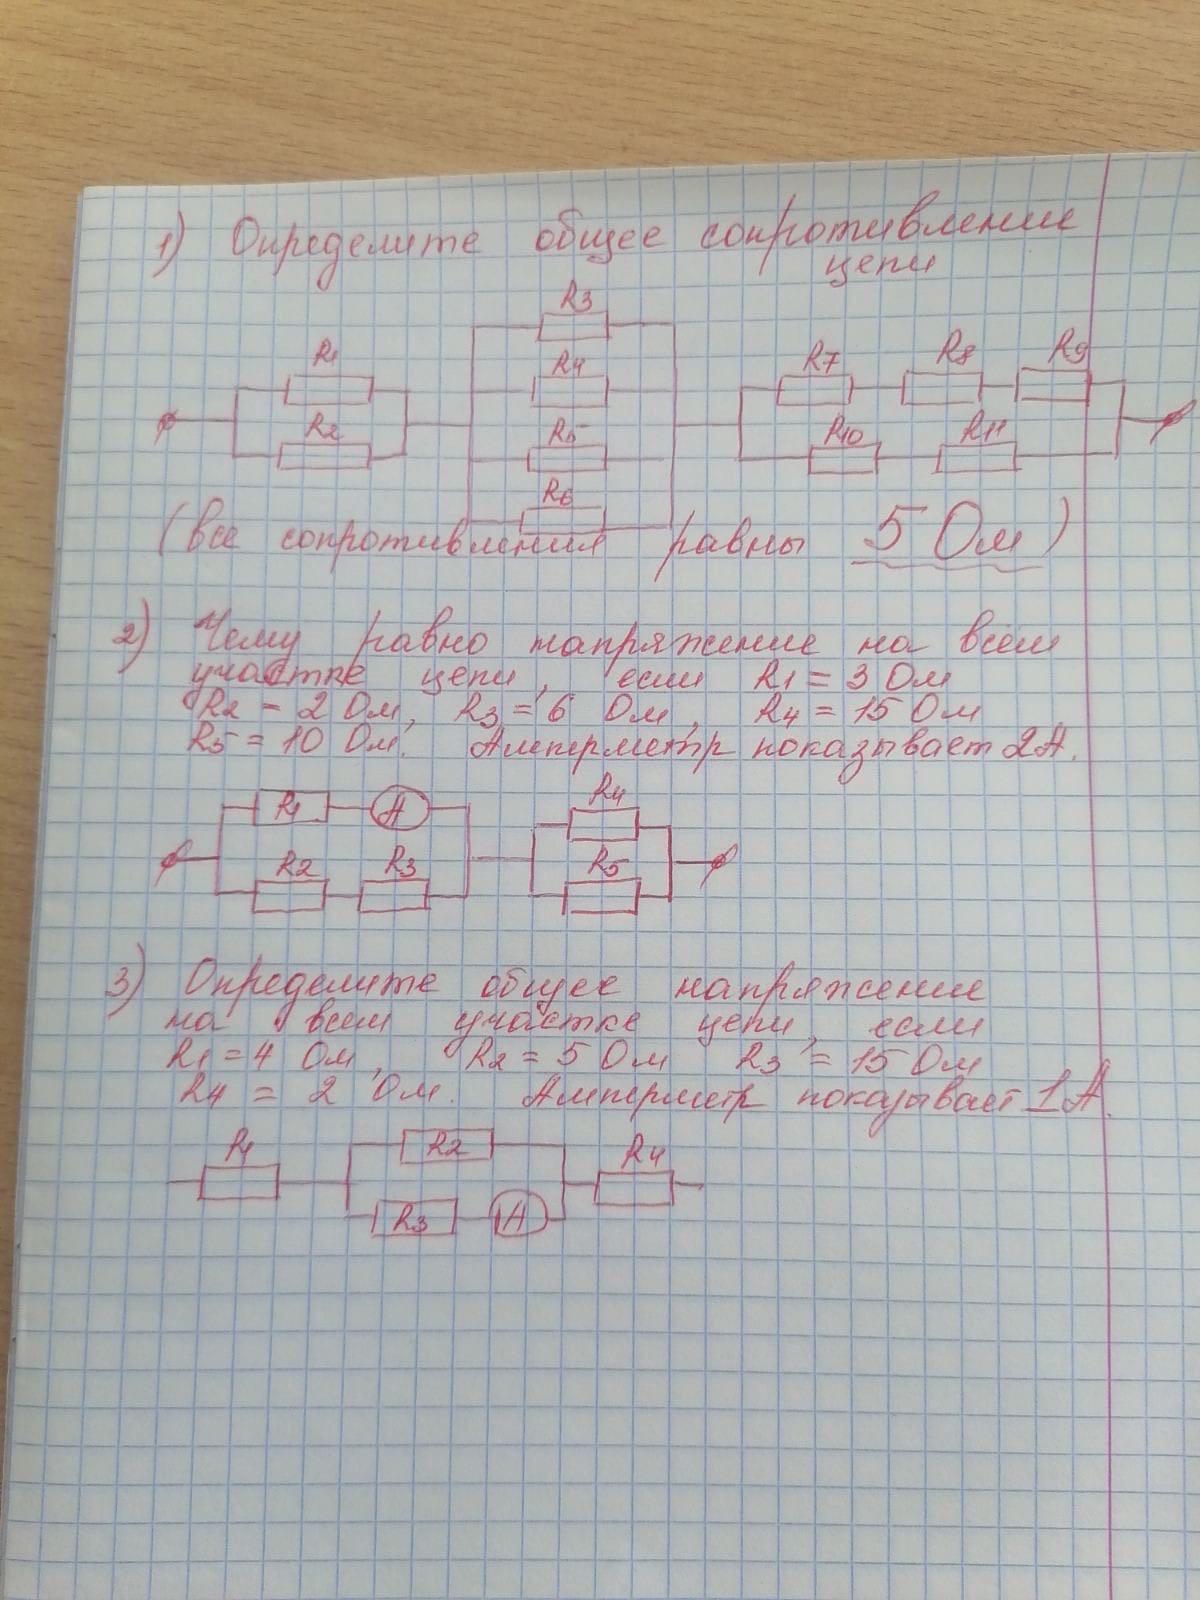 1) Определите общее сопротивление
цепи
R3
R1
R4
R7 R8 R9
R2
R5
R10 R11
R6
(все сопротивления равны 5 Ом)
2) Чему равно напряжение на всём
участке цепи, если R1 = 3 Ом
R2 = 2 Ом, R3 = 6 Ом, R4 = 15 Ом
R5 = 10 Ом. Амперметр показывает 2А.
R1 A
R4
R2 R3
R5
3) Определите общее напряжение
на всем участке цепи, если
R1 = 4 Ом, R2 = 5 Ом R3 = 15 Ом
R4 = 2 Ом. Амперметр показывает 1А.
R1
R2
R4
R3 A